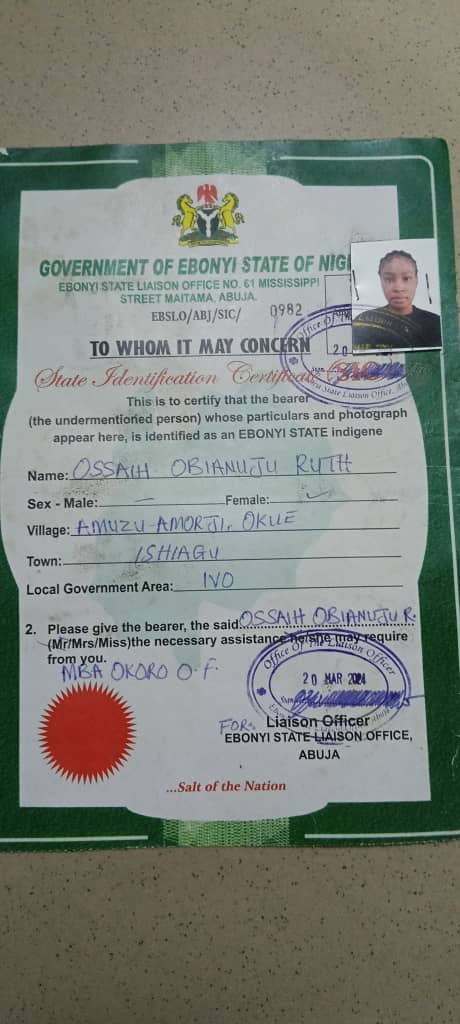 GOVERNMENT OF EBONYI STATE OF NIG
EBONYI STATE LIAISON OFFICE NO. 61 MISSISSIPPI
STREET MAITAMA, ABUJA.
EBSLO/ABJ/SIC/ 0982
TO WHOM IT MAY CONCERN
State Identification Certificate
This is to certify that the bearer
(the undermentioned person) whose particulars and photograph
appear here, is identified as an EBONYI STATE indigene
Name: OSSAIH OBIANUJU RUTH
Sex - Male: – Female: ✓
Village: AMUZU-AMORJI, OKUE
Town: ISHIAGU
Local Government Area: IVO
2. Please give the bearer, the said OSSAIH OBIANUJU R.
(Mr/Mrs/Miss)the necessary assistance he/she may require
from you.
MBA OKORO O.F.
Office Of The Liaison Officer
20 MAR 2024
FOR:
Liaison Officer
EBONYI STATE LIAISON OFFICE,
ABUJA
...Salt of the Nation